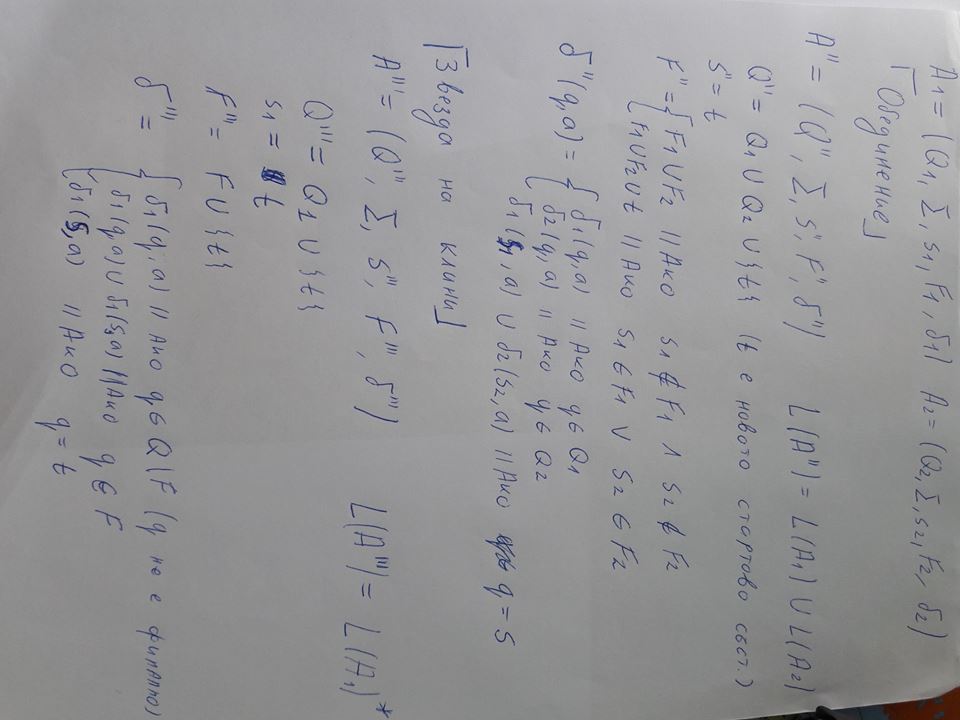 A1 = (Q1, Σ, s1, F1, δ1) A2 = (Q2, Σ, s2, F2, δ2)
⌈Обединение⌋
A'' = (Q'', Σ, s'', F'', δ'') L(A'') = L(A1) ∪ L(A2)
Q'' = Q1 ∪ Q2 ∪ {t} (t е новото стартово съст.)
s'' = t
F'' = { F1 ∪ F2 || Ако s1 ∉ F1 ∧ s2 ∉ F2
{ F1 ∪ F2 ∪ t || Ако s1 ∈ F1 ∨ s2 ∈ F2
δ''(q, a) = { δ1(q, a) || Ако q ∈ Q1
{ δ2(q, a) || Ако q ∈ Q2
δ1(s1, a) ∪ δ2(s2, a) || Ако q = s
⌈Звезда на клини⌋
A''' = (Q''', Σ, s''', F''', δ''') L(A''') = L(A1)*
Q''' = Q1 ∪ {t}
s1 = t
F''' = F ∪ {t}
δ''' = { δ1(q, a) || Ако q ∈ Q \ F (q не е финално)
{ δ1(q, a) ∪ δ1(s, a) || Ако q ∈ F
{ δ1(s, a) || Ако q = t